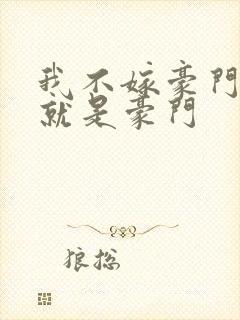 我不嫁豪門
就是豪門
狼總